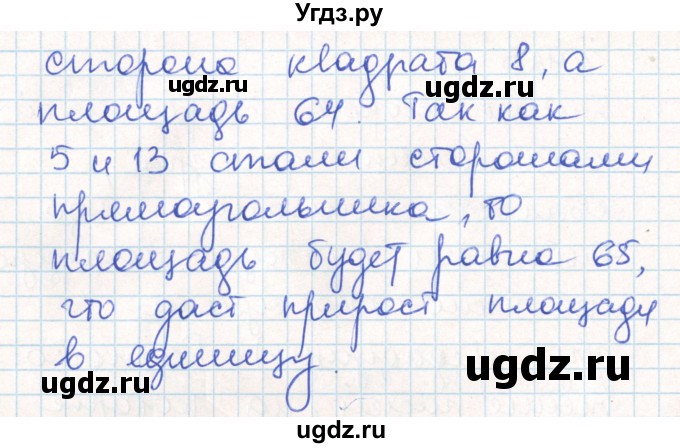 Угдз.ру
сторона квадрата 8, а
ugdz.ru ugdz.ru
площадь 64. Так как
5 и 13 стали сторонами
прямоугольника, то
площадь будет равна 65,
что даст прирост площади
в единицу.
ugdz.ru ugdz.ru
ugdz.ru